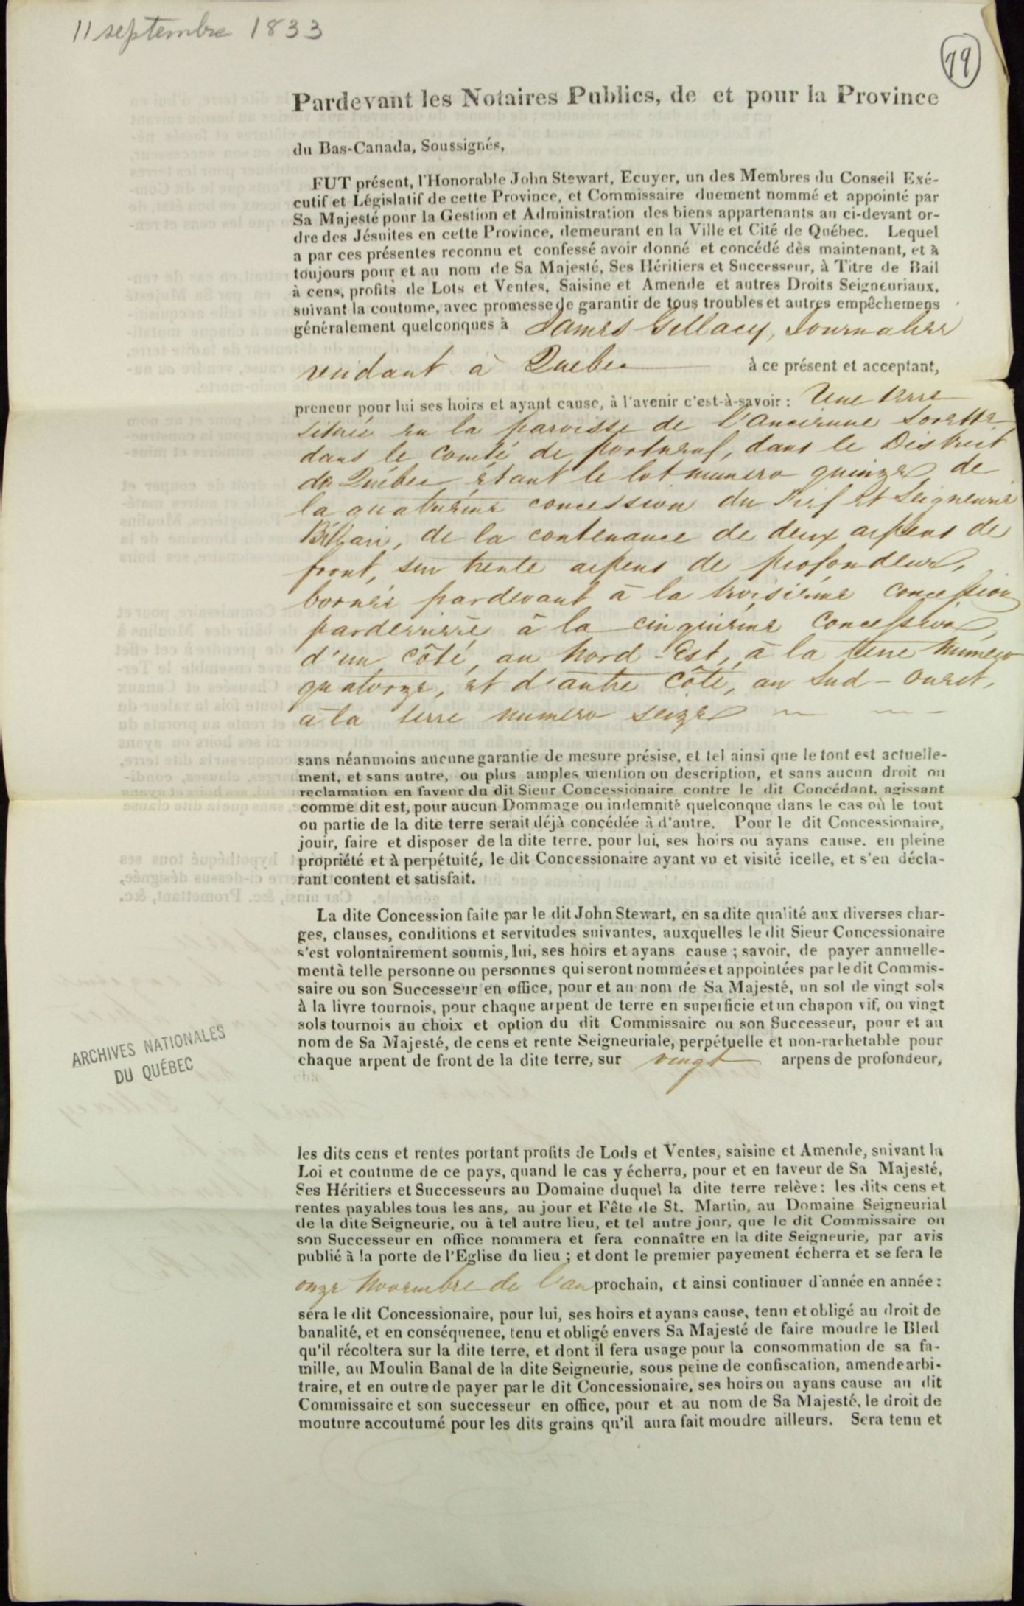 11 septembre 1833
79
Pardevant les Notaires Publics, de et pour la Province
du Bas-Canada, Soussignés,
FUT présent, l'Honorable John Stewart, Ecuyer, un des Membres du Conseil Exé-
cutif et Législatif de cette Province, et Commissaire duement nommé et appointé par
Sa Majesté pour la Gestion et Administration des biens appartenants au ci-devant or-
dre des Jésuites en cette Province, demeurant en la Ville et Cité de Québec. Lequel
a par ces présentes reconnu et confessé avoir donné et concédé dès maintenant, et à
toujours pour et au nom de Sa Majesté, Ses Héritiers et Successeur, à Titre de Bail
à cens, profits de Lots et Ventes, Saisine et Amende et autres Droits Seigneuriaux,
suivant la coutume, avec promesse de garantir de tous troubles et autres empêchemens
généralement quelconques à James Gillacy, Journalier
résidant à Québec à ce présent et acceptant,
preneur pour lui ses hoirs et ayant cause, à l'avenir c'est-à-savoir : Une terre
située en la paroisse de l'Ancienne Lorette,
dans le comté de portneuf, dans le District
de Québec, étant le lot numero quinze de
la quatrième concession du Fief et Seigneurie
Bélair, de la contenance de deux arpens de
front, sur trente arpens de profondeur,
bornée pardevant à la troisième concession
parderrière à la cinquième concession,
d'un côté, au Nord-Est, à la terre Numéro
quatorze, et d'autre côté, au Sud-Ouest,
à la terre numero seize
sans néanmoins aucune garantie de mesure présise, et tel ainsi que le tont est actuelle-
ment, et sans autre, ou plus amples mention ou description, et sans aucun droit ou
reclamation en faveur du dit Sieur Concessionaire contre le dit Concédant, agissant
comme dit est, pour aucun Dommage ou indemnité quelconque dans le cas où le tout
ou partie de la dite terre serait déjà concédée à d'autre. Pour le dit Concessionaire,
jouir, faire et disposer de la dite terre, pour lui, ses hoirs ou ayans cause, en pleine
propriété et à perpétuité, le dit Concessionaire ayant vu et visité icelle, et s'en décla-
rant content et satisfait.
La dite Concession faite par le dit John Stewart, en sa dite qualité aux diverses char-
ges, clauses, conditions et servitudes suivantes, auxquelles le dit Sieur Concessionaire
s'est volontairement soumis, lui, ses hoirs et ayans cause ; savoir, de payer annuelle-
ment à telle personne ou personnes qui seront nommées et appointées par le dit Commis-
saire ou son Successeur en office, pour et au nom de Sa Majesté, un sol de vingt sols
à la livre tournois, pour chaque arpent de terre en superficie et un chapon vif, ou vingt
sols tournois au choix et option du dit Commissaire ou son Successeur, pour et au
nom de Sa Majesté, de cens et rente Seigneuriale, perpétuelle et non-rachetable pour
chaque arpent de front de la dite terre, sur vingt arpens de profondeur,
ARCHIVES NATIONALES
DU QUÉBEC
les dits cens et rentes portant profits de Lods et Ventes, saisine et Amende, suivant la
Loi et coutume de ce pays, quand le cas y écherra, pour et en faveur de Sa Majesté,
Ses Héritiers et Successeurs au Domaine duquel la dite terre relève: les dits cens et
rentes payables tous les ans, au jour et Fête de St. Martin, au Domaine Seigneurial
de la dite Seigneurie, ou à tel autre lieu, et tel autre jour, que le dit Commissaire ou
son Successeur en office nommera et fera connaître en la dite Seigneurie, par avis
publié à la porte de l'Eglise du lieu ; et dont le premier payement écherra et se fera le
onze Novembre de l'an prochain, et ainsi continuer d'année en année:
sera le dit Concessionaire, pour lui, ses hoirs et ayans cause, tenu et obligé au droit de
banalité, et en conséquence, tenu et obligé envers Sa Majesté de faire moudre le Bled
qu'il récoltera sur la dite terre, et dont il fera usage pour la consommation de sa fa-
mille, au Moulin Banal de la dite Seigneurie, sous peine de confiscation, amende arbi-
traire, et en outre de payer par le dit Concessionaire, ses hoirs ou ayans cause au dit
Commissaire et son successeur en office, pour et au nom de Sa Majesté, le droit de
mouture accoutumé pour les dits grains qu'il aura fait moudre ailleurs. Sera tenu et